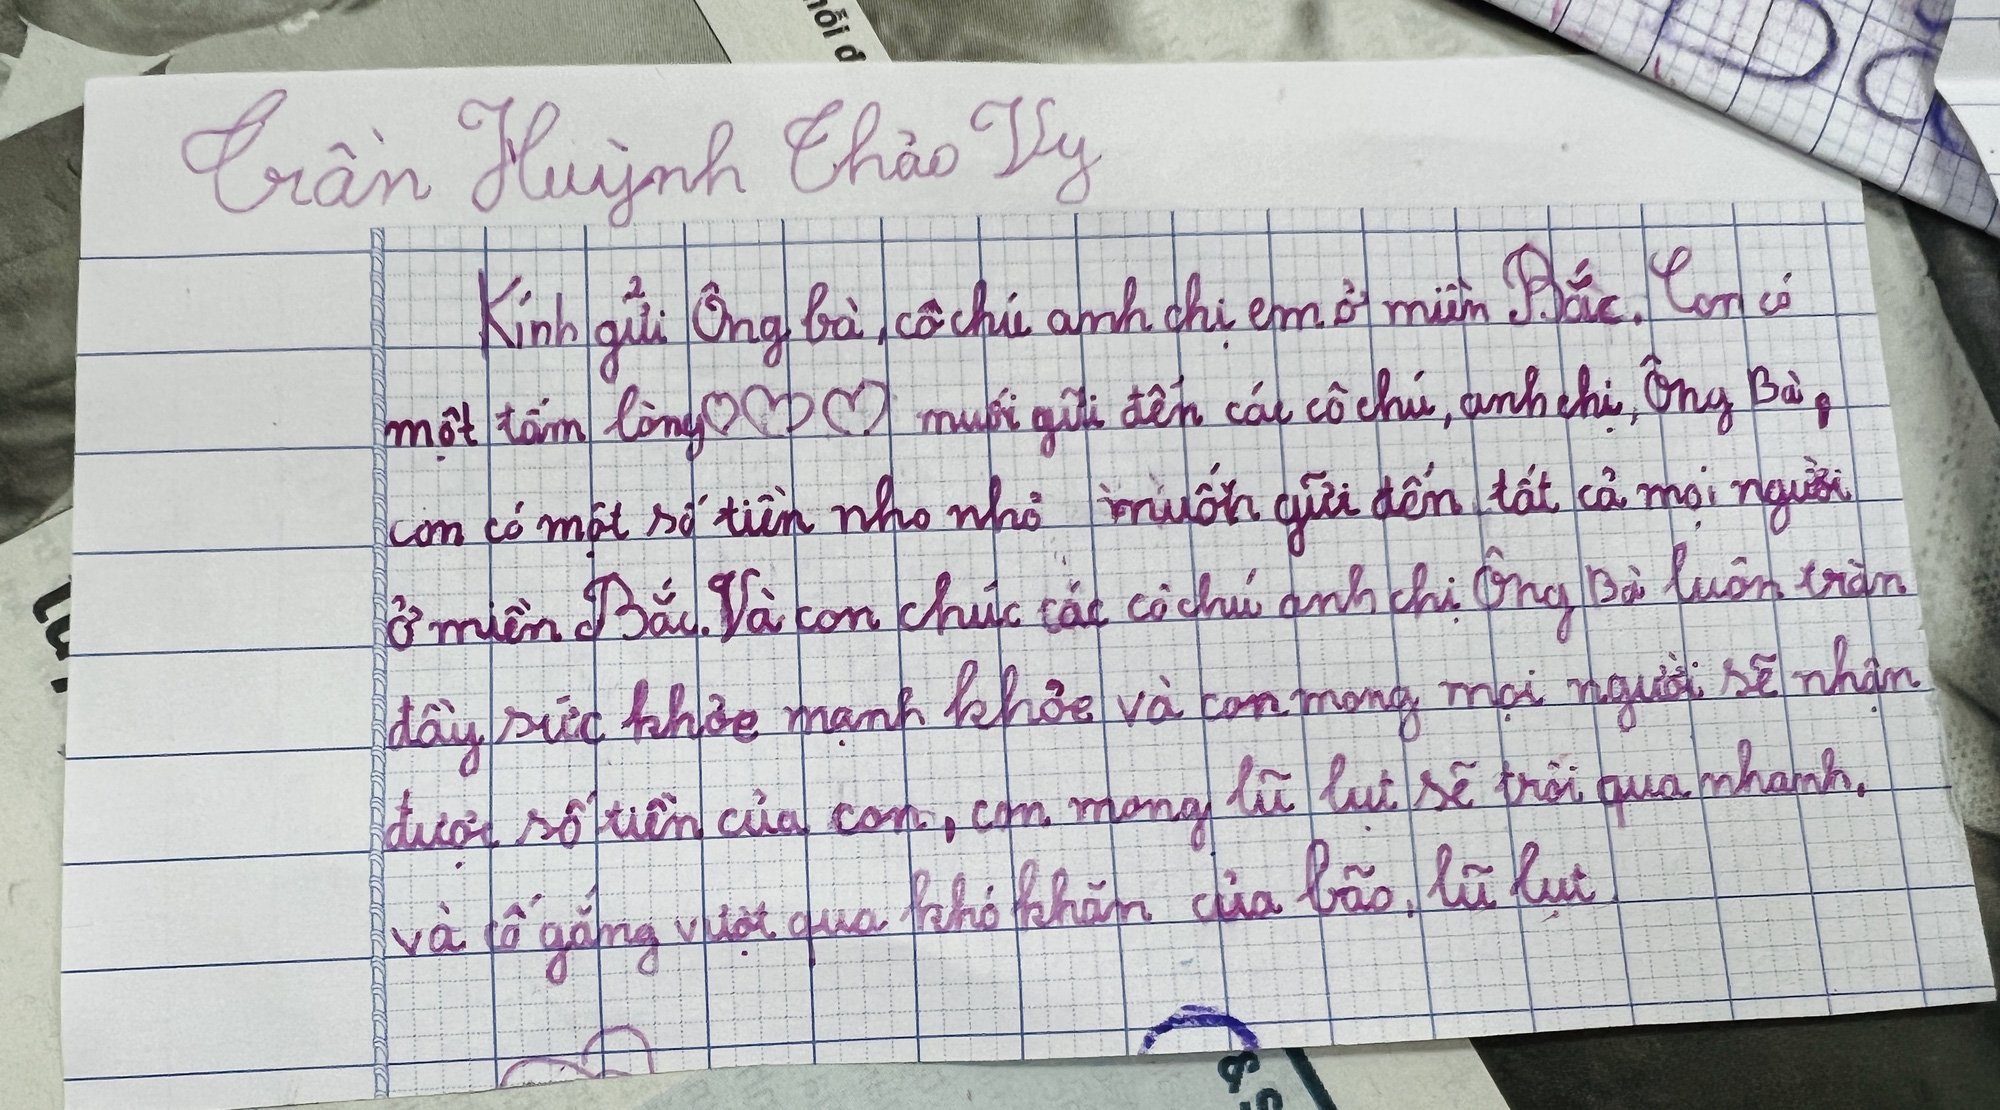 nỗi đ
Trần Huỳnh Thảo Vy
Kính gửi Ông bà, cô chú anh chị em ở miền Bắc. Con có
một tấm lòng♡♡♡ muối gửi đến các cô chú, anh chị, Ông Bà,
con có một số tiền nho nhỏ muốn gửi đến tất cả mọi người
ở miền Bắc. Và con chúc các cô chú anh chị Ông Bà luôn tràn
đầy sức khỏe mạnh khỏe và con mong mọi người sẽ nhận
được số tiền của con, con mong lũ lụt sẽ trôi qua nhanh.
và cố gắng vượt qua khó khăn của bão, lũ lụt